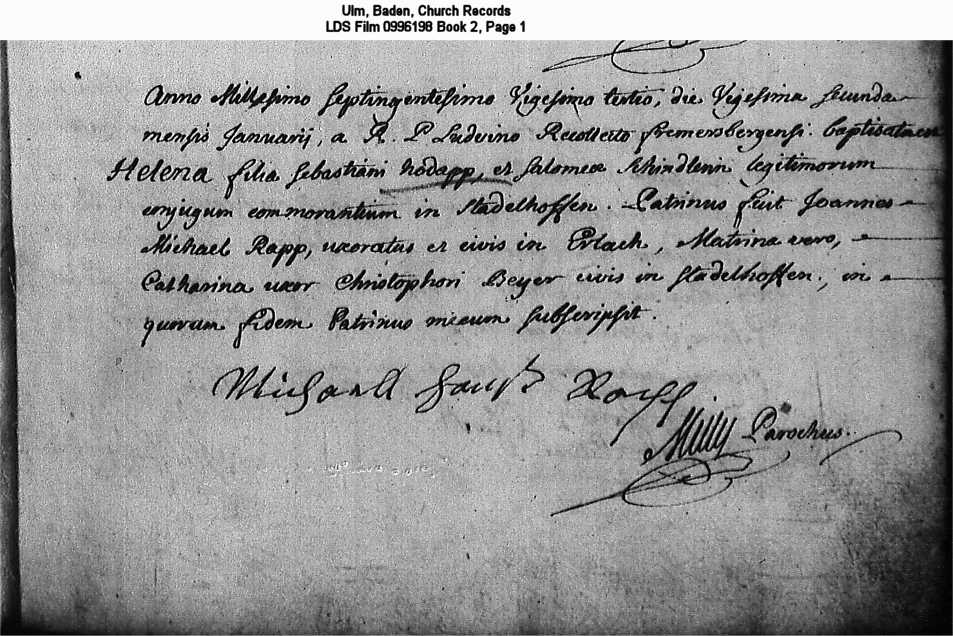 Ulm, Baden, Church Records
LDS Film 0996198 Book 2, Page 1
Anno Millesimo Septingentesimo Vigesimo tertio, die Vigesima secunda
mensis Januarij, a R. P. Ludvino Recollecto fremersbergensi baptisata
Helena filia Sebastiani Nodapp, et Salomeæ Schindlerin legitimorum
conjugum commorantium in Stadelhoffen. Patrinus fuit Joannes
Michael Rapp, uxoratus et civis in Erlach, Matrina vero,
Catharina uxor Christophori Beyer civis in Stadelhoffen, in
quorum fidem Patrinus mecum subscripsit.
Michaell Rapp
Parochus.